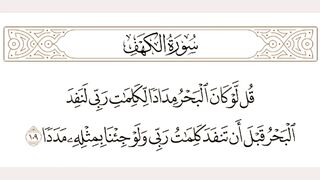 سُورَةُ الكَهْفِ
قُل لَّوْ كَانَ ٱلْبَحْرُ مِدَادًا لِّكَلِمَٰتِ رَبِّى لَنَفِدَ
ٱلْبَحْرُ قَبْلَ أَن تَنفَدَ كَلِمَٰتُ رَبِّى وَلَوْ جِئْنَا بِمِثْلِهِۦ مَدَدًا ١٠٩